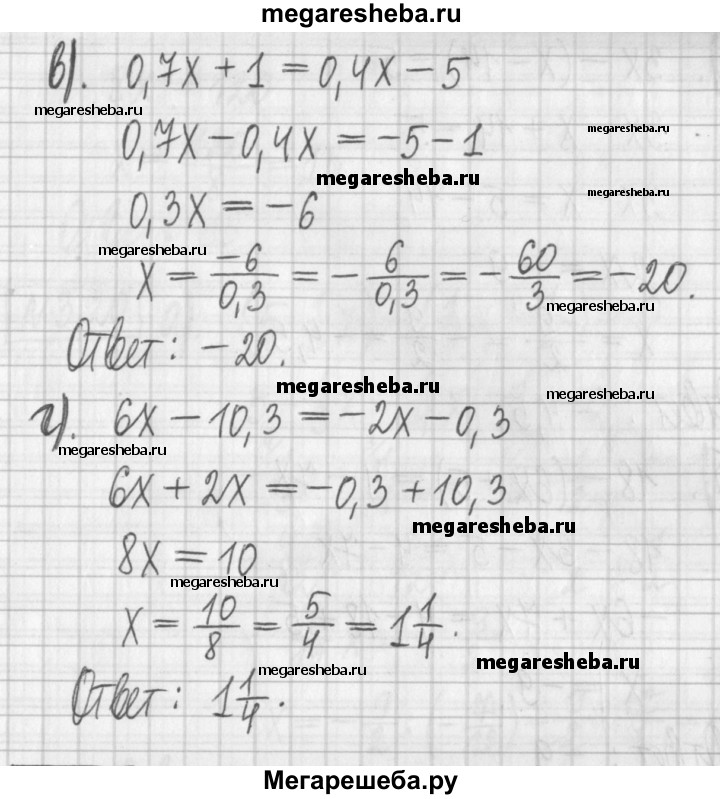 megaresheba.ru
в). 0,7x + 1 = 0,4x − 5
megaresheba.ru
megaresheba.ru
0,7x − 0,4x = −5 − 1
megaresheba.ru
megaresheba.ru
0,3x = −6
megaresheba.ru
x = −6/0,3 = − 6/0,3 = − 60/3 = −20.
megaresheba.ru
Ответ: −20.
megaresheba.ru
megaresheba.ru
г). 6x − 10,3 = −2x − 0,3
megaresheba.ru
6x + 2x = −0,3 + 10,3
megaresheba.ru
8x = 10
megaresheba.ru
x = 10/8 = 5/4 = 1 1/4.
megaresheba.ru
megaresheba.ru
Ответ: 1 1/4.
Мегарешеба.ру